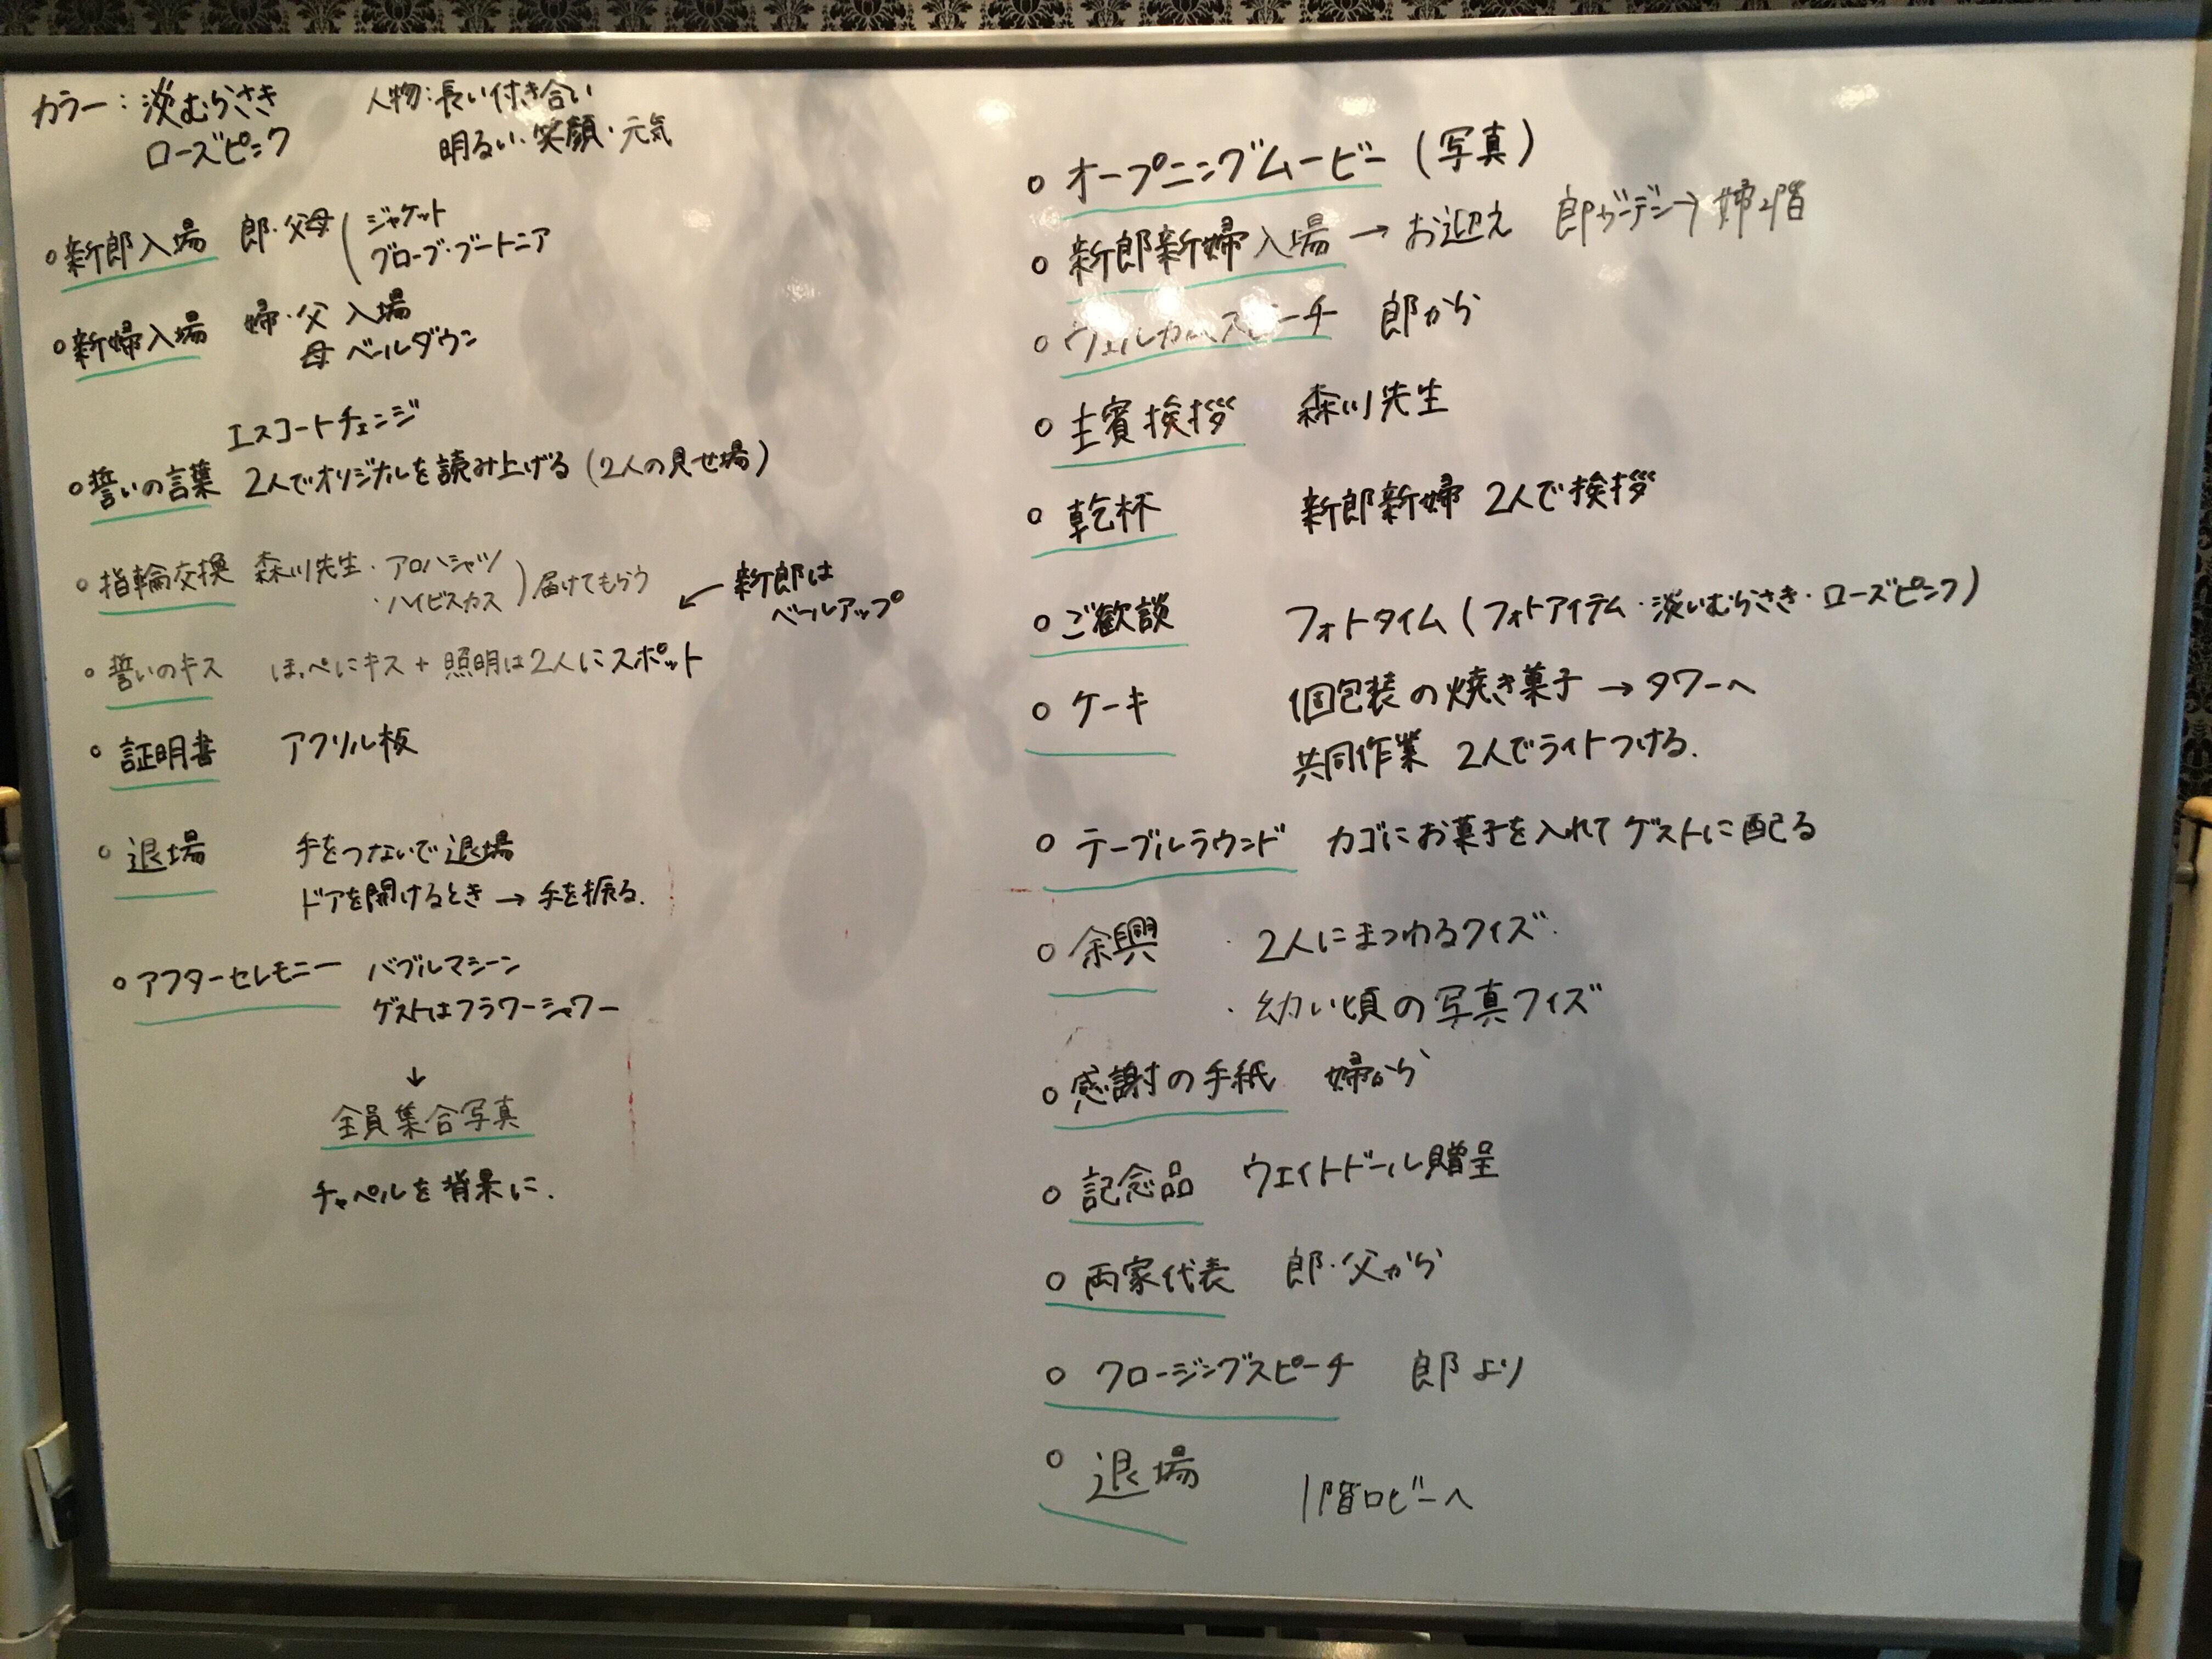 カラー：淡むらさき
ローズピンク
人物：長い付き合い
明るい・笑顔・元気
○新郎入場 郎・父母（ジャケット
グローブ・ブートニア
○新婦入場 婦・父 入場
母 ベールダウン
エスコートチェンジ
○誓いの言葉 2人でオリジナルを読み上げる（2人の見せ場）
○指輪交換 森川先生・アロハシャツ
・ハイビスカス）届けてもらう
← 新郎は
ベールアップ
○誓いのキス ほっぺにキス + 照明は2人にスポット
○証明書 アクリル板
○退場 手をつないで退場
ドアを開けるとき → 手を振る.
○アフターセレモニー バブルマシーン
ゲストはフラワーシャワー
↓
全員集合写真
チャペルを背景に.
○オープニングムービー（写真）
○新郎新婦入場 → お迎え 郎ガーデン → 婦2階
○ウェルカムスピーチ 郎から
○主賓挨拶 森川先生
○乾杯 新郎新婦 2人で挨拶
○ご歓談 フォトタイム（フォトアイテム・淡いむらさき・ローズピンク）
○ケーキ 個包装の焼き菓子 → タワーへ
共同作業 2人でライトつける.
○テーブルラウンド カゴにお菓子を入れてゲストに配る
○余興 ・2人にまつわるクイズ
・幼い頃の写真クイズ
○感謝の手紙 婦から
○記念品 ウェイトドール贈呈
○両家代表 郎・父から
○クロージングスピーチ 郎より
○退場 1階ロビーへ